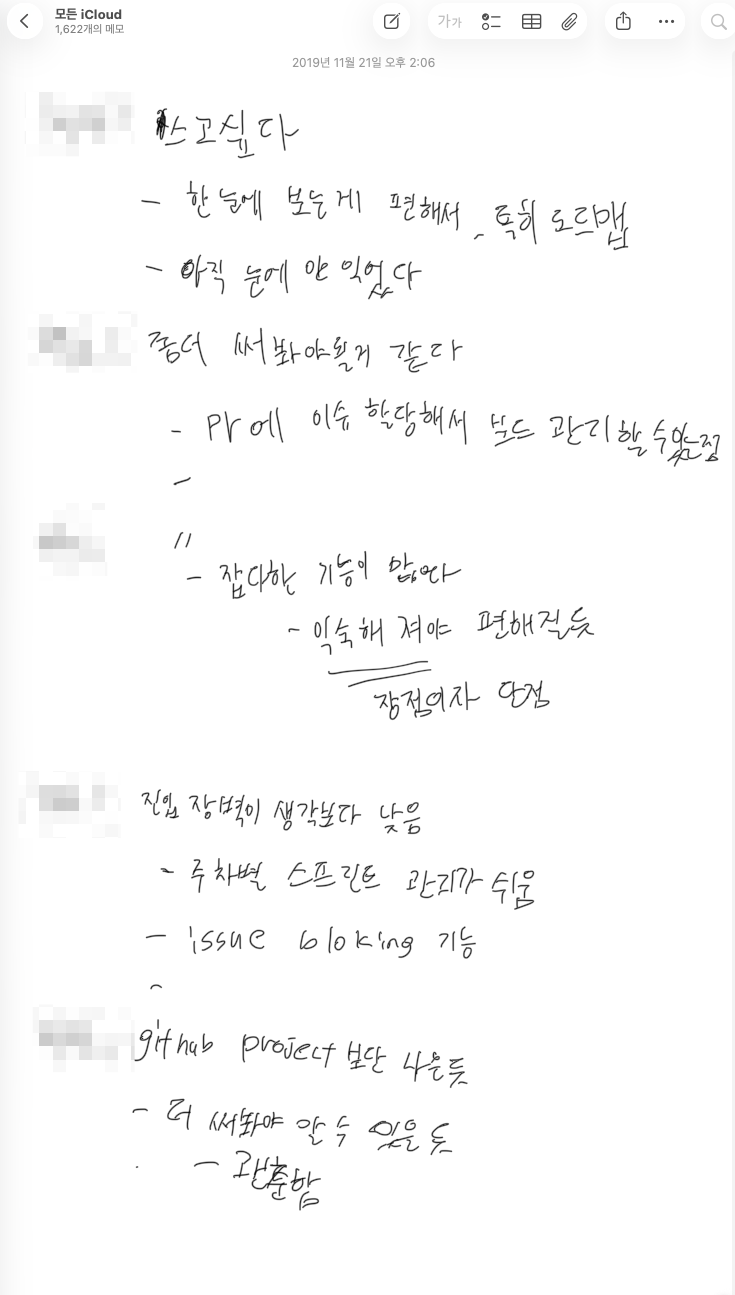 모든 iCloud
1,622개의 메모
가가
2019년 11월 21일 오후 2:06
쓰고싶다
- 한눈에 보는게 편해서, 특히 로드맵
- 아직 눈에 안 익었다
좀더 써봐야될거 같다
- PR에 이슈 할당해서 보드 관리할 수 있는점
-
〃
- 잡다한 기능이 많다
- 익숙해 져야 편해질듯
장점이자 단점
진입 장벽이 생각보다 낮음
- 주차별 스프린트 관리가 쉬움
- issue bloking 기능
-
github project 보단 나은듯
- 더 써봐야 알 수 있을 듯
- 괜춘함